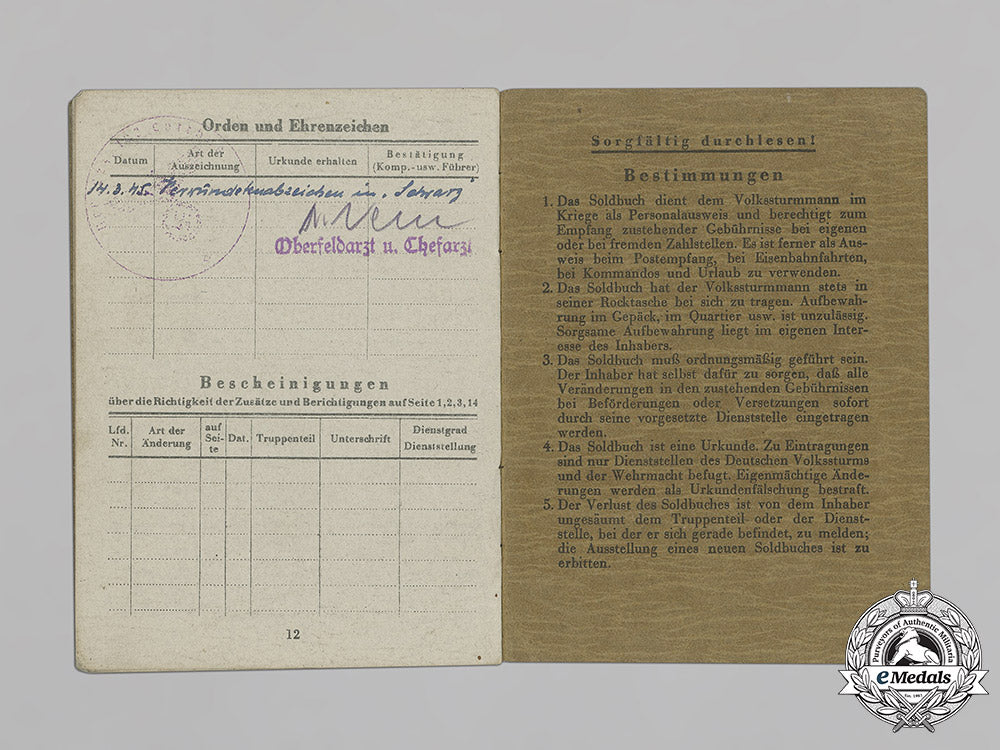 Orden und Ehrenzeichen
Datum
Art der
Auszeichnung
Urkunde erhalten
Bestätigung
(Komp.-usw. Führer)
14.3.45. Verwundetenabzeichen in "Schwarz"
Oberfeldarzt u. Chefarzt
Bescheinigungen
über die Richtigkeit der Zusätze und Berichtigungen auf Seite 1, 2, 3, 14
Lfd.
Nr.
Art der
Änderung
auf
Sei-
te
Dat.
Truppenteil
Unterschrift
Dienstgrad
Dienststellung
12
Sorgfältig durchlesen!
Bestimmungen
1. Das Soldbuch dient dem Volkssturmmann im
Kriege als Personalausweis und berechtigt zum
Empfang zustehender Gebührnisse bei eigenen
oder bei fremden Zahlstellen. Es ist ferner als Aus-
weis beim Postempfang, bei Eisenbahnfahrten,
bei Kommandos und Urlaub zu verwenden.
2. Das Soldbuch hat der Volkssturmmann stets in
seiner Rocktasche bei sich zu tragen. Aufbewah-
rung im Gepäck, im Quartier usw. ist unzulässig.
Sorgsame Aufbewahrung liegt im eigenen Inter-
esse des Inhabers.
3. Das Soldbuch muß ordnungsmäßig geführt sein.
Der Inhaber hat selbst dafür zu sorgen, daß alle
Veränderungen in den zustehenden Gebührnissen
bei Beförderungen oder Versetzungen sofort
durch seine vorgesetzte Dienststelle eingetragen
werden.
4. Das Soldbuch ist eine Urkunde. Zu Eintragungen
sind nur Dienststellen des Deutschen Volkssturms
und der Wehrmacht befugt. Eigenmächtige Ände-
rungen werden als Urkundenfälschung bestraft.
5. Der Verlust des Soldbuches ist von dem Inhaber
ungesäumt dem Truppenteil oder der Dienst-
stelle, bei der er sich gerade befindet, zu melden;
die Ausstellung eines neuen Soldbuches ist zu
erbitten.
Purveyors of Authentic Militaria
eMedals